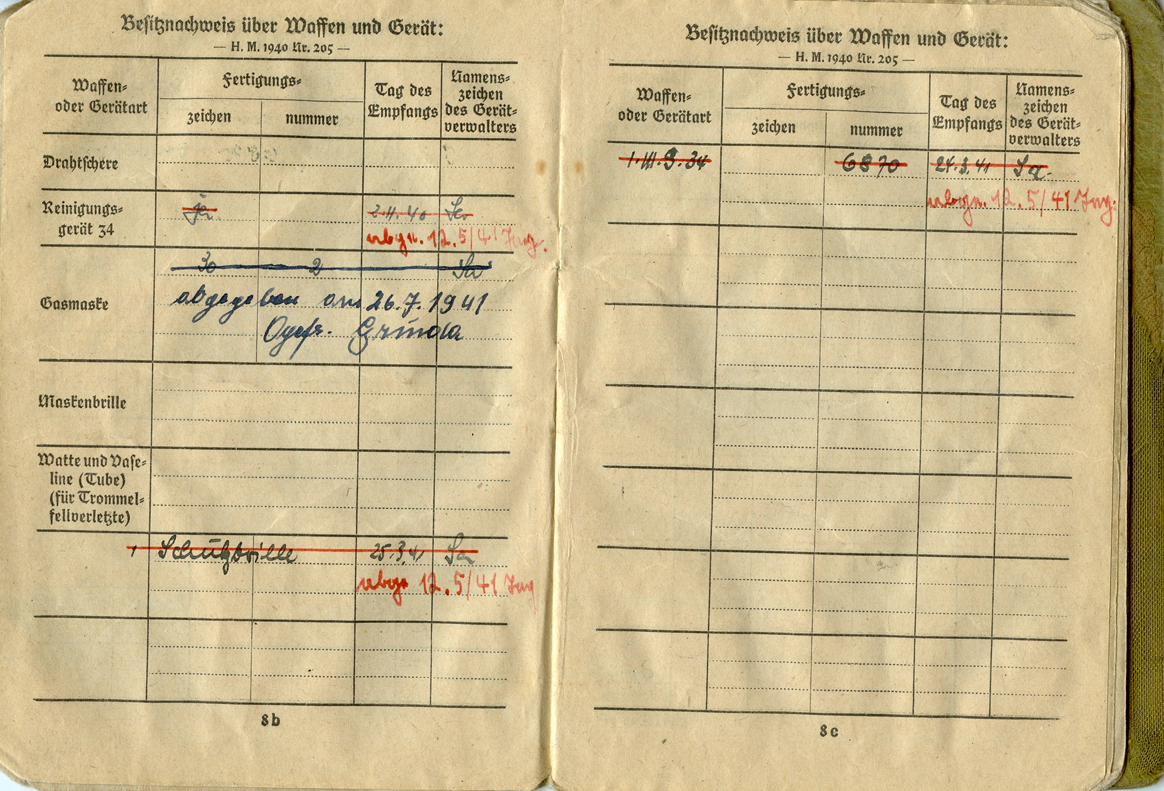 Besitznachweis über Waffen und Gerät:
— H. M. 1940 Nr. 205 —
Waffen- oder Gerätart
Fertigungs-
zeichen nummer
Tag des Empfangs
Namens-zeichen des Gerät-verwalters
Drahtschere
Reinigungs-
gerät 34
2.11.40
abgg. 12.5/41
30 2 Sa
Gasmaske
abgegeben am 26.7.1941
Ogefr.
Maskenbrille
Watte und Vase-
line (Tube)
(für Trommel-
fellverletzte)
1 Schutzbrille 25.3.41 Sa
12.5/41
8b
Besitznachweis über Waffen und Gerät:
— H. M. 1940 Nr. 205 —
Waffen- oder Gerätart
Fertigungs-
zeichen nummer
Tag des Empfangs
Namens-zeichen des Gerät-verwalters
6870 24.3.41 Sa.
12.5/41
8c